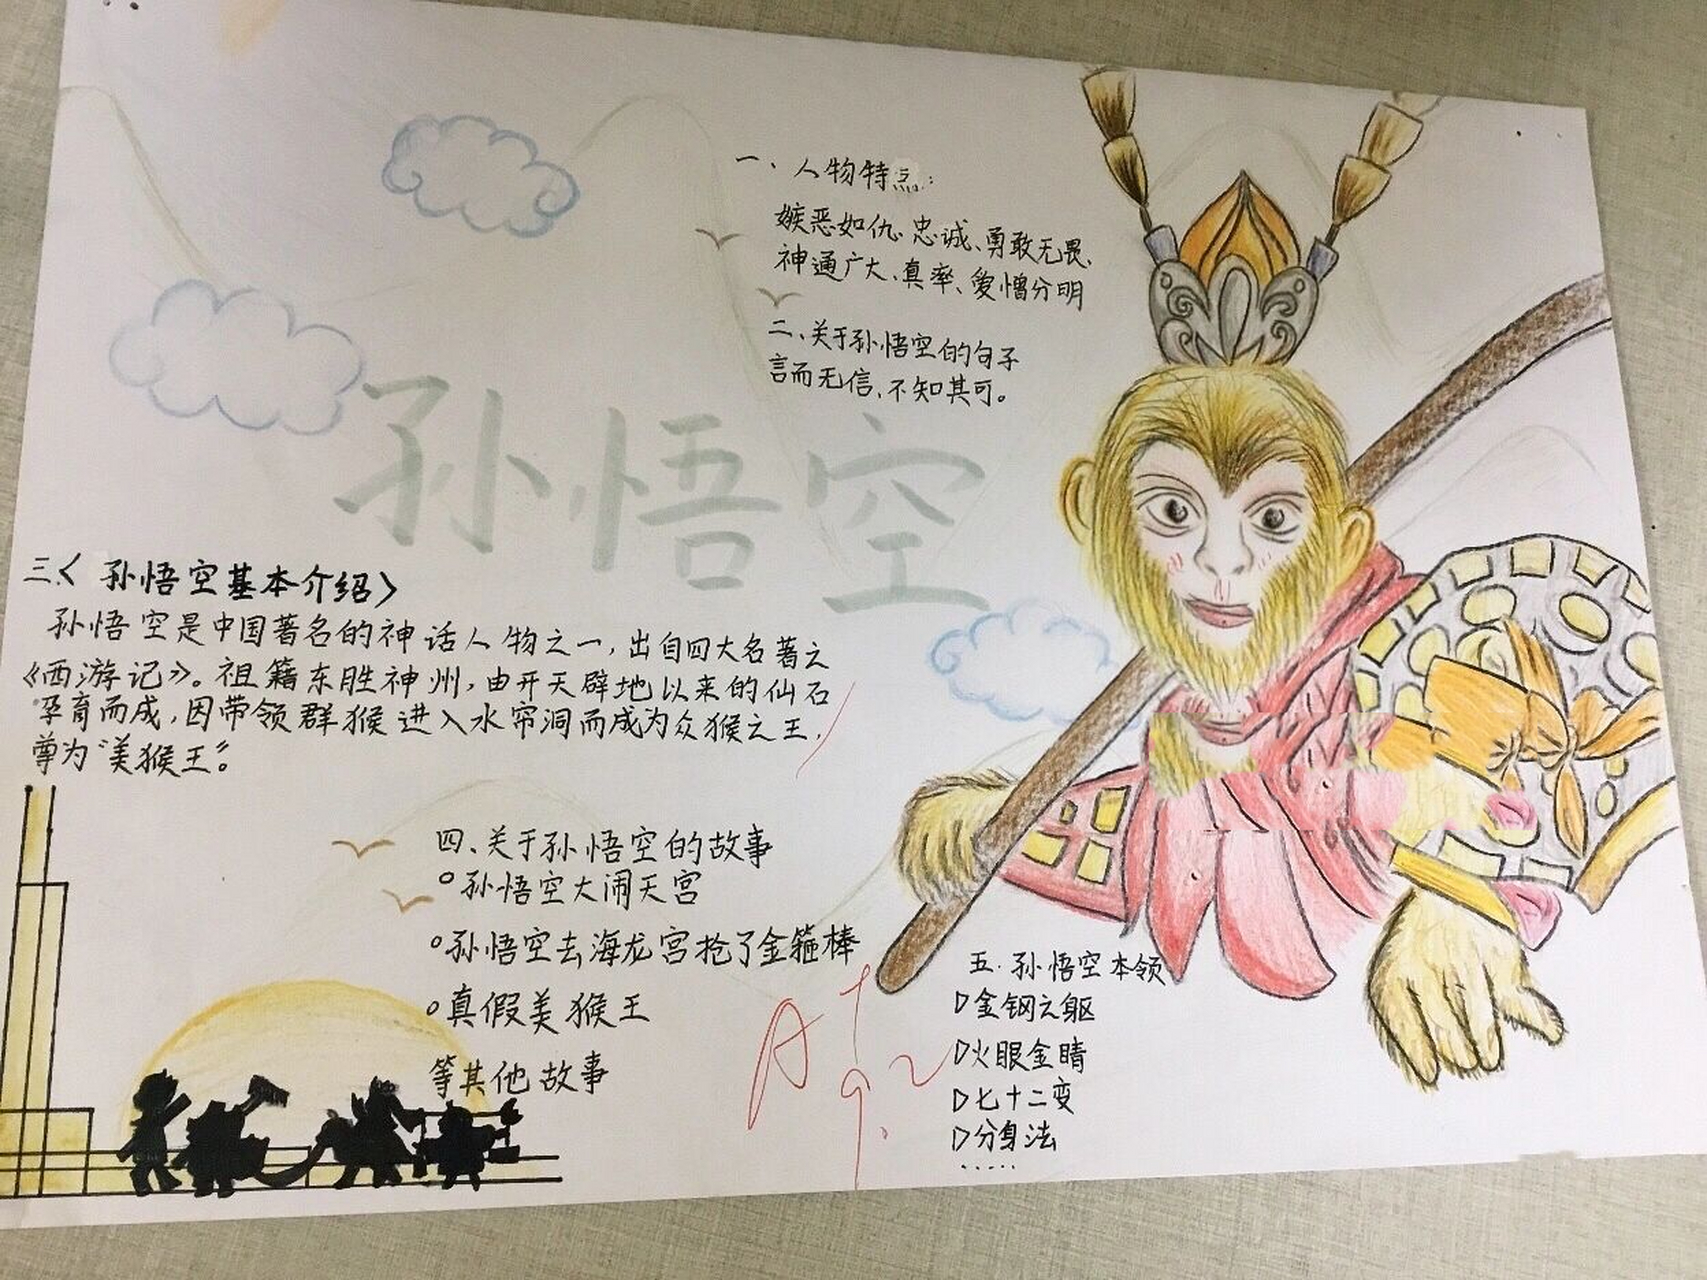 一、人物特点:
嫉恶如仇、忠诚、勇敢无畏、
神通广大、真率、爱憎分明
二、关于孙悟空的句子
言而无信,不知其可。
孙悟空
三、〈孙悟空基本介绍〉
孙悟空是中国著名的神话人物之一,出自四大名著之
《西游记》。祖籍东胜神州,由开天辟地以来的仙石
孕育而成,因带领群猴进入水帘洞而成为众猴之王,
尊为“美猴王”。
四、关于孙悟空的故事
孙悟空大闹天宫
孙悟空去海龙宫抢了金箍棒
真假美猴王
等其他故事
五.孙悟空本领
金钢之躯
火眼金睛
七十二变
分身法
......
A+
9.2